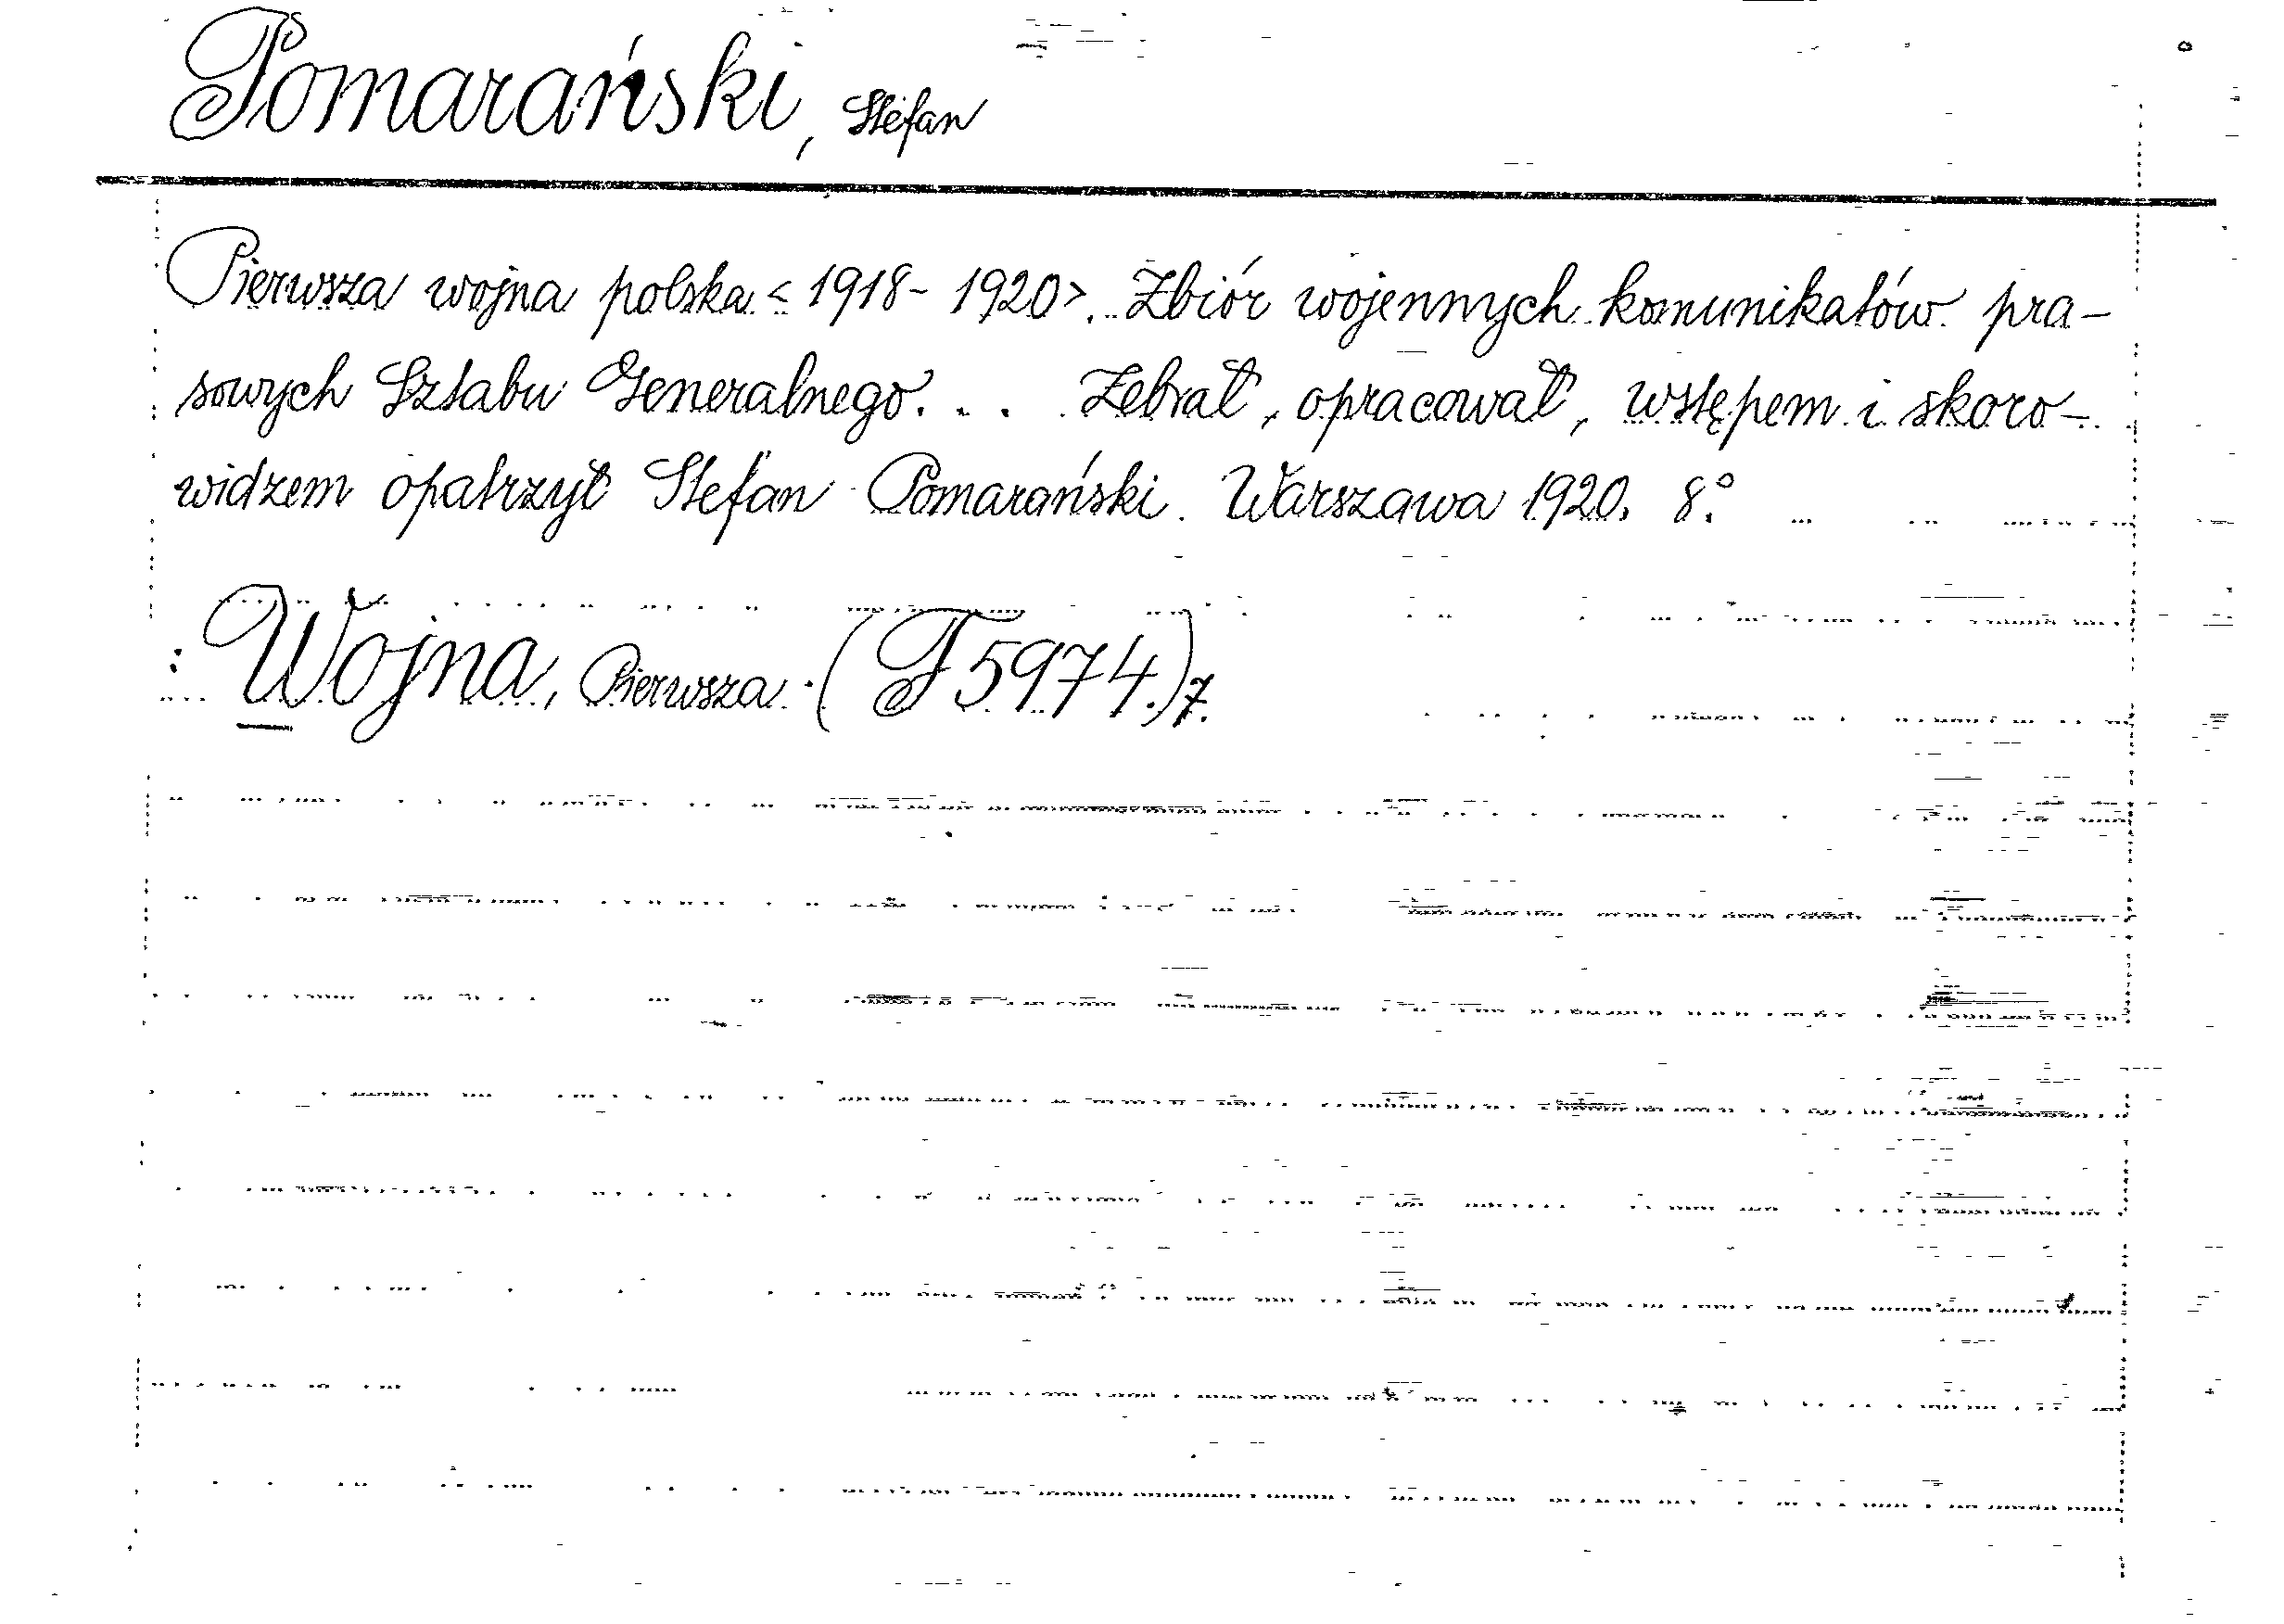 Pomarański, Stefan
Pierwsza wojna polska <1918-1920>. Zbiór wojennych komunikatów pra-
sowych Sztabu Generalnego... Zebrał, opracował, wstępem i skoro-
widzem opatrzył Stefan Pomarański. Warszawa 1920. 8.°
: Wojna, Pierwsza. (F 5974.)7.